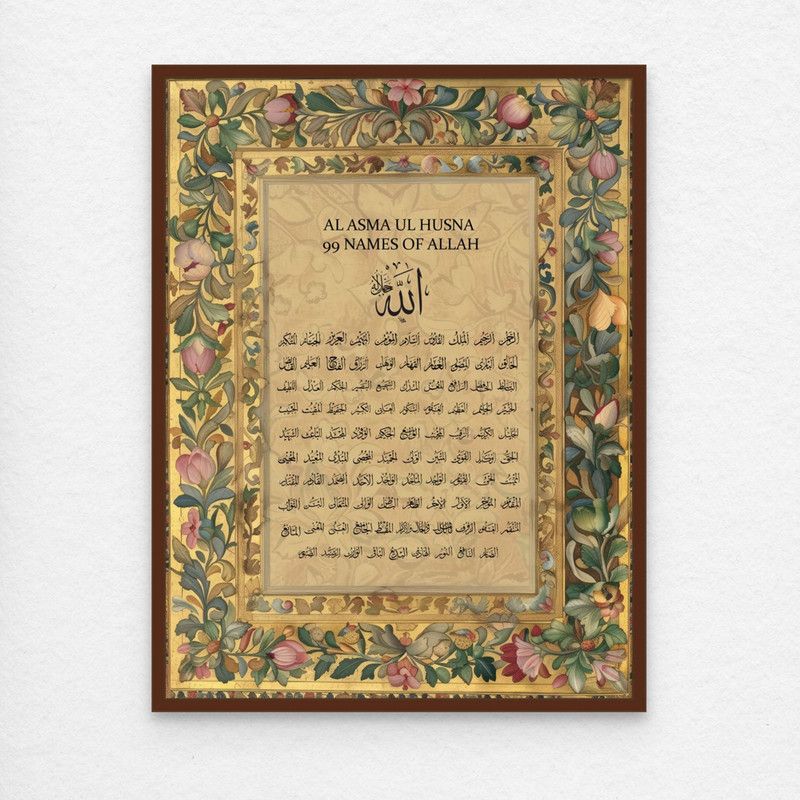 AL ASMA UL HUSNA
99 NAMES OF ALLAH
الله جل جلاله
الرحمن الرحيم الملك القدوس السلام المؤمن المهيمن العزيز الجبار المتكبر
الخالق البارئ المصور الغفار القهار الوهاب الرزاق الفتاح العليم القابض
الباسط الخافض الرافع المعز المذل السميع البصير الحكم العدل اللطيف
الخبير الحليم العظيم الغفور الشكور العلي الكبير الحفيظ المقيت الحسيب
الجليل الكريم الرقيب المجيب الواسع الحكيم الودود المجيد الباعث الشهيد
الحق الوكيل القوي المتين الولي الحميد المحصي المبدئ المعيد المحيي
المميت الحي القيوم الواجد الماجد الواحد الأحد الصمد القادر المقتدر
المقدم المؤخر الأول الآخر الظاهر الباطن الوالي المتعالي البر التواب
المنتقم العفو الرؤوف مالك الملك ذو الجلال والإكرام المقسط الجامع الغني المغني المانع
الضار النافع النور الهادي البديع الباقي الوارث الرشيد الصبور